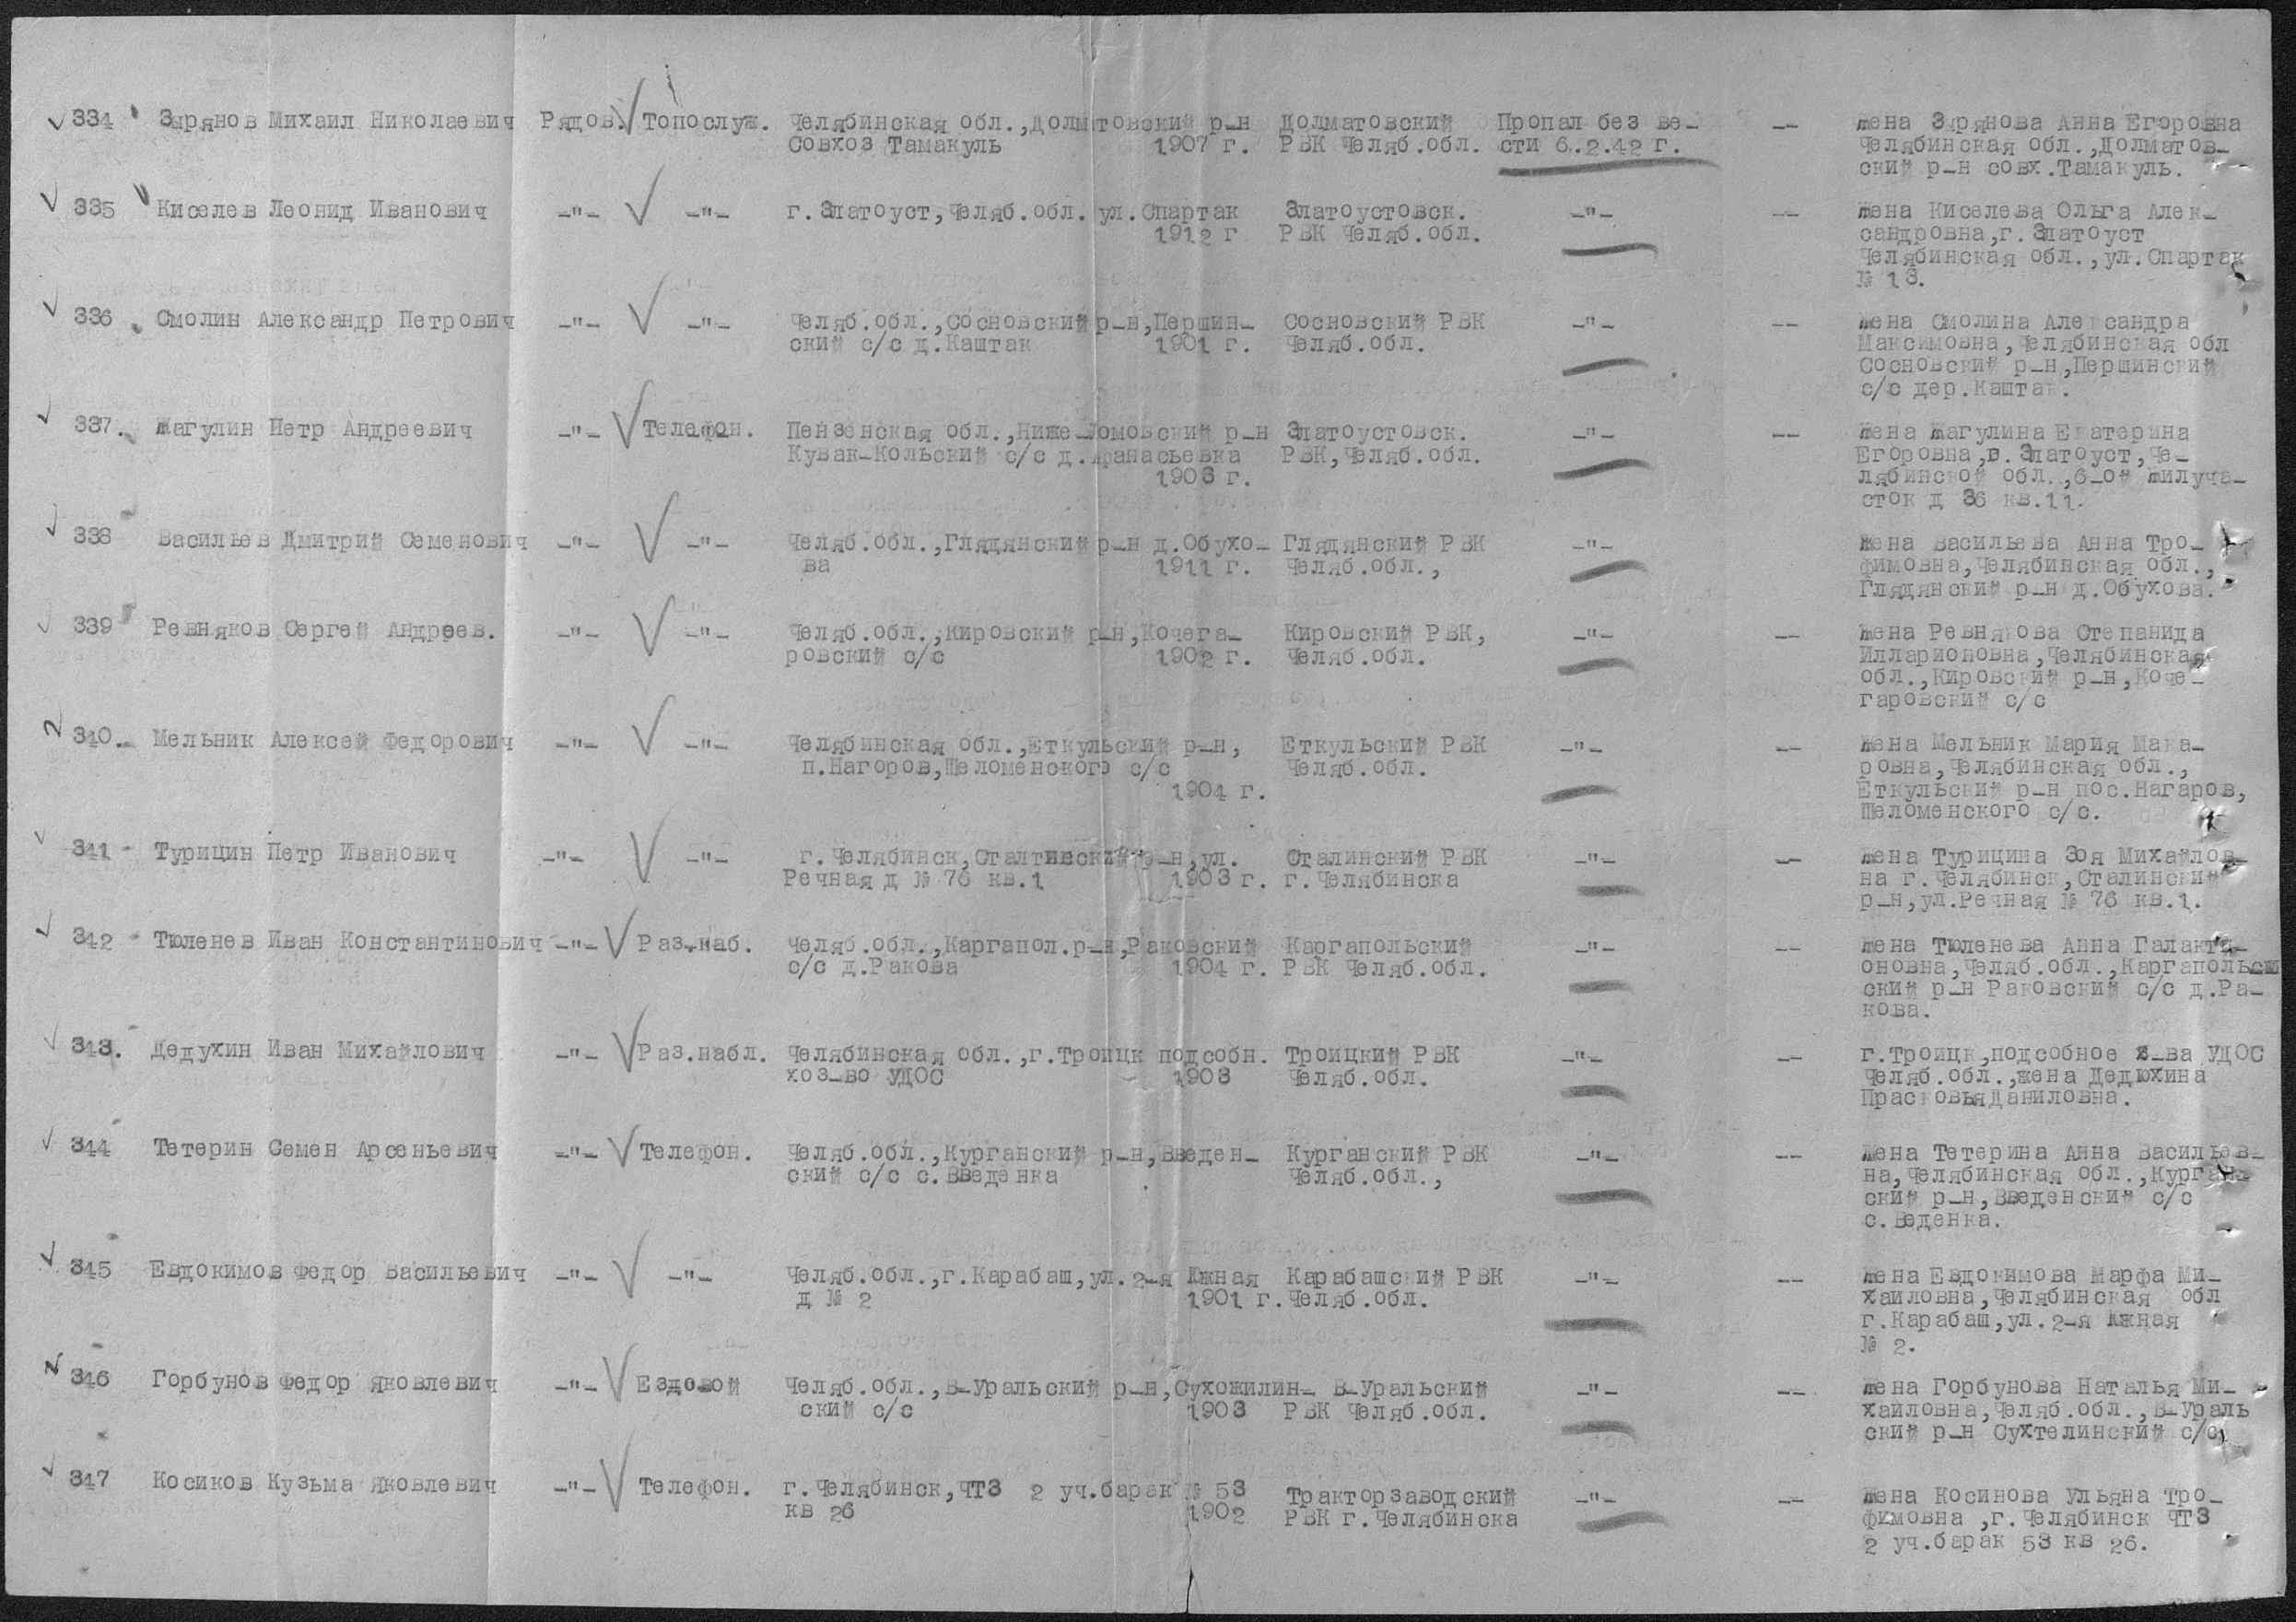 334 Зырянов Михаил Николаевич Рядов. Топослуж. Челябинская обл.,Долматовский р-н Долматовский Пропал без ве- -- жена Зырянова Анна Егоровна
совхоз Тамакуль 1907 г. РВК Челяб.обл. сти 6.2.42 г. Челябинская обл.,Долматов-
ский р-н совх.Тамакуль.
335 Киселев Леонид Иванович -"- -"- г.Златоуст,Челяб.обл. ул.Спартак Златоустовск. -"- -- жена Киселева Ольга Алек-
1912 г РВК Челяб.обл. сандровна,г.Златоуст
Челябинская обл.,ул.Спартак
№ 13.
336 Смолин Александр Петрович -"- -"- Челяб.обл.,Сосновский р-н,Першин- Сосновский РВК -"- -- жена Смолина Александра
ский с/с д.Каштак 1901 г. Челяб.обл. Максимовна,Челябинская обл
Сосновский р-н,Першинский
с/с дер.Каштак.
337. Жагулин Петр Андреевич -"- Телефон. Пензенская обл.,Ниже-Ломовский р-н Златоустовск. -"- -- жена Жагулина Екатерина
Кувак-Кольский с/с д.Афанасьевка РВК,Челяб.обл. Егоровна,г.Златоуст,Че-
1903 г. лябинской обл.,6-ой жилуча-
сток д 36 кв.11.
338 Васильев Дмитрий Семенович -"- -"- Челяб.обл.,Глядянский р-н д.Обухо- Глядянский РВК -"- жена Васильева Анна Тро-
ва 1911 г. Челяб.обл., фимовна,Челябинская обл.,
Глядянский р-н д.Обухова.
339 Ревняков Сергей Андреев. -"- -"- Челяб.обл.,Кировский р-н,Кочега- Кировский РВК, -"- -- жена Ревнякова Степанида
ровский с/с 1902 г. Челяб.обл. Илларионовна,Челябинская
обл.,Кировский р-н,Коче-
гаровский с/с
340. Мельник Алексей Федорович -"- -"- Челябинская обл.,Еткульский р-н, Еткульский РВК -"- -- жена Мельник Мария Мака-
п.Нагоров,Шеломенского с/с Челяб.обл. ровна,Челябинская обл.,
1904 г. Еткульский р-н пос.Нагаров,
Шеломенского с/с.
341 Турицин Петр Иванович -"- -"- г.Челябинск,Сталтинский р-н,ул. Сталинский РВК -"- -- жена Турицина Зоя Михайлов-
Речная д № 76 кв.1 1903 г. г.Челябинска на г.Челябинск,Сталинский
р-н,ул.Речная № 76 кв.1.
342 Тюленев Иван Константинович -"- Раз.наб. Челяб.обл.,Каргапол.р-н,Раковский Каргапольский -"- -- жена Тюленева Анна Галакти-
с/с д.Ракова 1904 г. РВК Челяб.обл. оновна,Челяб.обл.,Каргапольсш
ский р-н Раковский с/с д.Ра-
кова.
343. Дедухин Иван Михайлович -"- Раз.набл. Челябинская обл.,г.Троицк подсобн. Троицкий РВК -"- -- г.Троицк,подсобное х-ва УДОС
хоз-во УДОС 1903 Челяб.обл. Челяб.обл.,жена Дедюхина
ПрасковьяДаниловна.
344 Тетерин Семен Арсеньевич -"- Телефон. Челяб.обл.,Курганский р-н,Введен- Курганский РВК -"- -- жена Тетерина Анна Васильев-
ский с/с с.Введенка Челяб.обл., на,Челябинская обл.,Курган-
ский р-н,Введенский с/с
с.Веденка.
345 Евдокимов Федор Васильевич -"- -"- Челяб.обл.,г.Карабаш,ул.2-я Южная Карабашский РВК -"- -- жена Евдокимова Марфа Ми-
д № 2 1901 г. Челяб.обл. хайловна,Челябинская обл
г.Карабаш,ул.2-я Южная
№ 2.
346 Горбунов Федор Яковлевич -"- Ездовой Челяб.обл.,В-Уральский р-н,Сухожилин- В-Уральский -"- -- жена Горбунова Наталья Ми-
ский с/с 1903 РВК Челяб.обл. хайловна,Челяб.обл.,В-Ураль
ский р-н Сухтелинский с/с
347 Косиков Кузьма Яковлевич -"- Телефон. г.Челябинск,ЧТЗ 2 уч.барак № 53 Тракторзаводский -"- -- жена Косинова Ульяна Тро-
кв 26 1902 РВК г.Челябинска фимовна ,г.Челябинск ЧТЗ
2 уч.барак 53 кв 26.